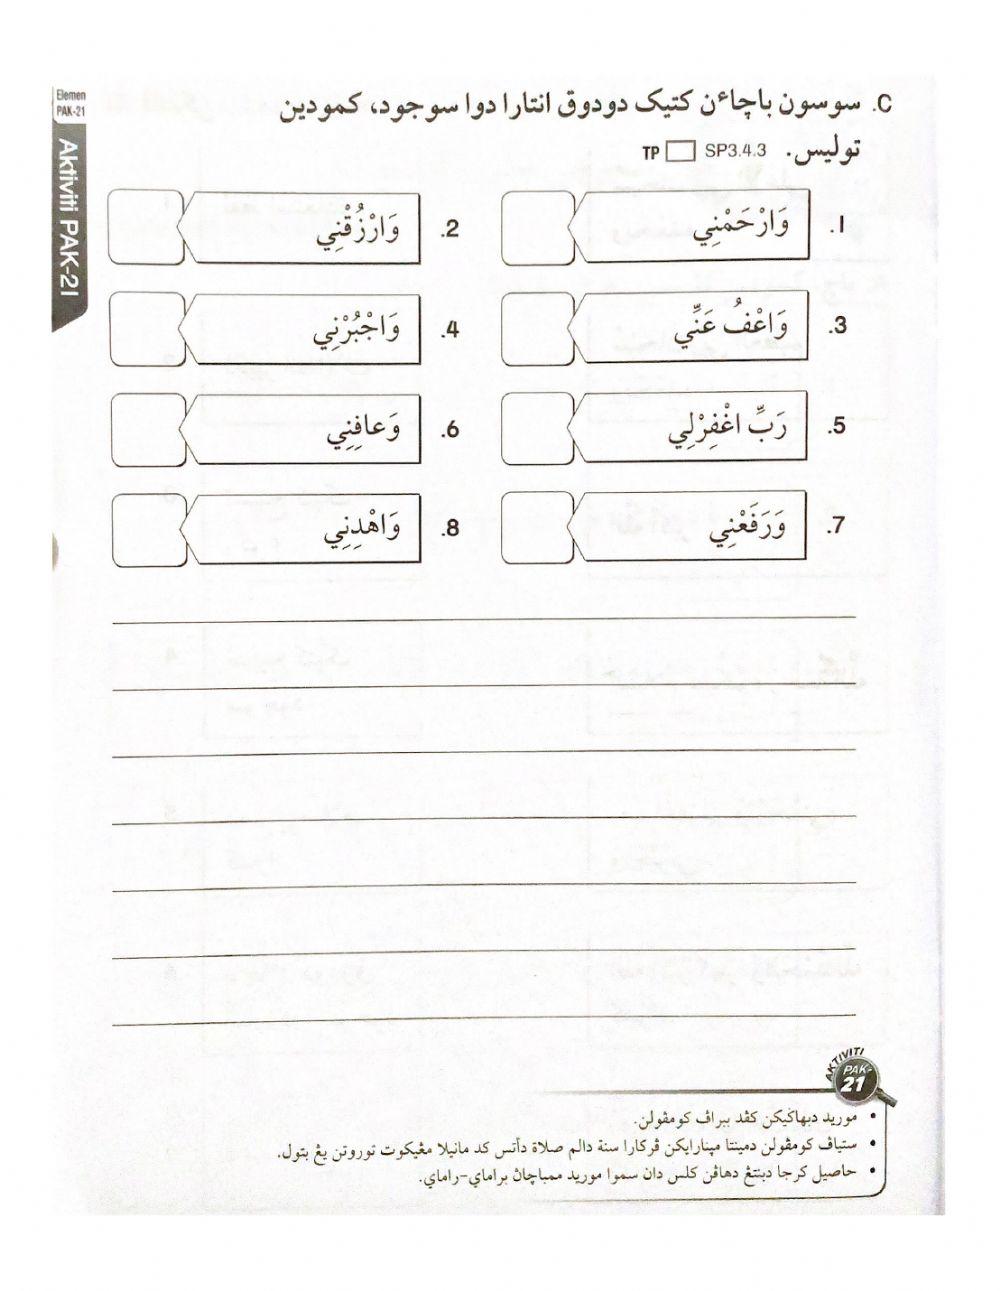 Elemen
PAK-21
Aktiviti PAK-21
C. سوسون باچاءن كتيک دودوق انتارا دوا سوجود، كمودين
توليس. SP3.4.3 TP
1. وَارْحَمْنِي
2. وَارْزُقْنِي
3. وَاعْفُ عَنِّي
4. وَاجْبُرْنِي
5. رَبِّ اغْفِرْلِي
6. وَعافِنِي
7. وَرَفَعْنِي
8. وَاهْدِنِي
AKTIVITI
PAK-
21
• موريد دبهاݢيكن كڤد ببراڤ كومڤولن.
• ستياڤ كومڤولن دمينتا مڽنارايكن ڤركارا سنة دالم صلاة دأتس كد مانيلا مڠيكوت توروتن يڠ بتول.
• حاصيل كرجا دبنتڠ دهاڤن كلس دان سموا موريد ممباچاڽ براماي-راماي.